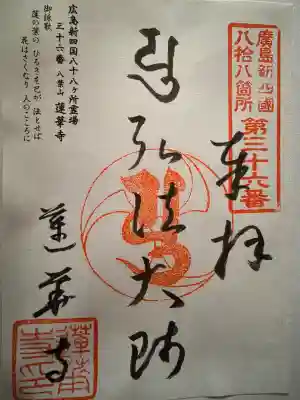 廣島新四國
八拾八箇所
第三十六番
奉拜
弘法大師
蓮華寺
広島新四国八十八ヶ所霊場
三十六番 八葉山 蓮華寺
御詠歌
蓮の葉の ひろきそ己が 法とせば
花はさくなり 人のこころに